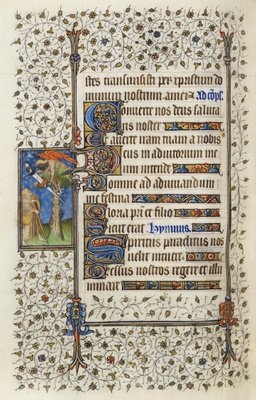 stes transmisisti per xpristum do
minum nostrum amen Ad cōpł
Converte nos deus saluta
ris noster
Et averte iram tuam a nobis
Deus in adiutorium me
um intende
Domine ad adiuvandum
me festina
Gloria pri et filio
Sicut erat Hymnus
Spiritus paraclitus nos
iudet
Gressus nostros regere et illu
minare